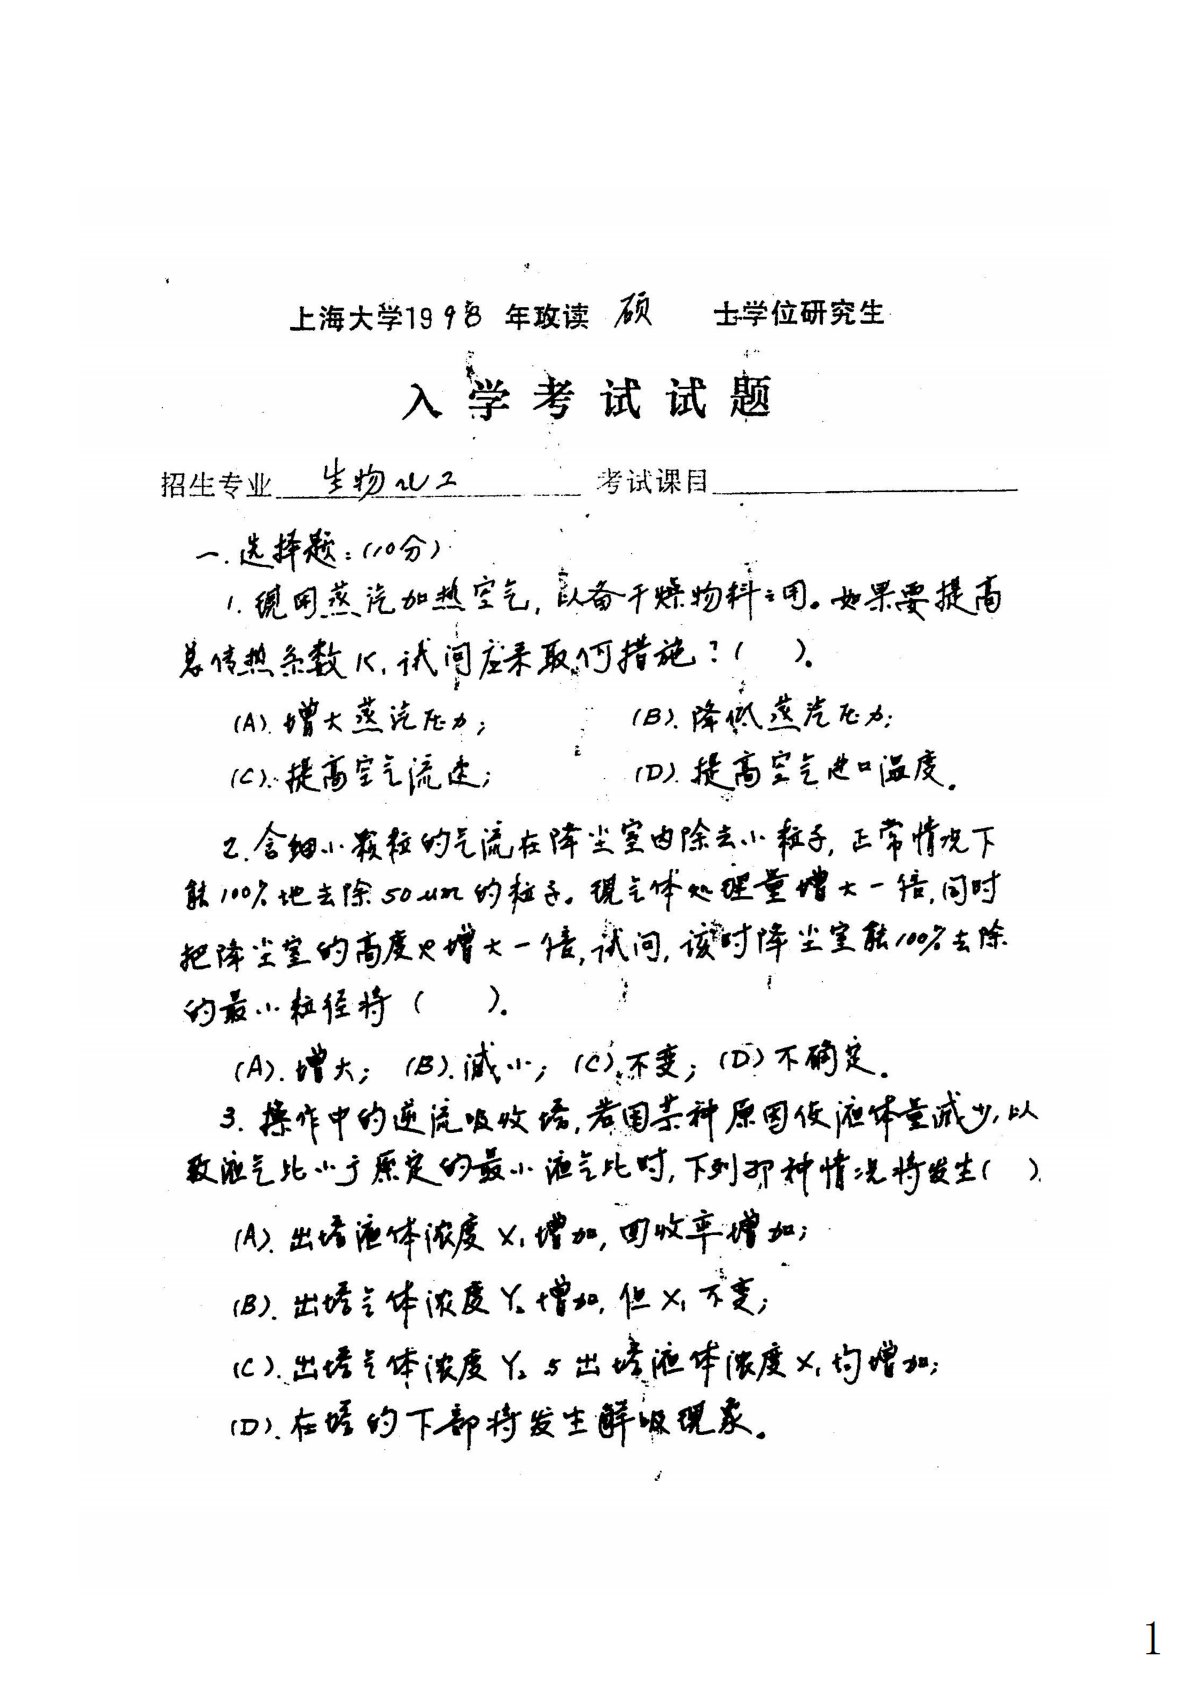 上海大学1998年攻读 硕 士学位研究生
入学考试试题
招生专业 生物化工 考试课目
一.选择题:(10分)
1.现用蒸汽加热空气,以备干燥物料之用。如果要提高
总传热系数K,试问应采取何措施?( )。
(A).增大蒸汽压力; (B).降低蒸汽压力;
(C).提高空气流速; (D).提高空气进口温度。
2.含细小颗粒的气流在降尘室内除去小粒子,正常情况下
能100%地去除50μm的粒子。现气体处理量增大一倍,同时
把降尘室的高度也增大一倍,试问,该时降尘室能100%去除
的最小粒径将( )。
(A).增大; (B).减小; (C).不变; (D)不确定。
3.操作中的逆流吸收塔,若因某种原因使液体量减少,以
致液气比小于原定的最小液气比时,下列那种情况将发生( ).
(A).出塔液体浓度X₁增加,回收率增加;
(B).出塔气体浓度Y₂增加,但X₁不变;
(C).出塔气体浓度Y₂与出塔液体浓度X₁均增加;
(D).在塔的下部将发生解吸现象。
1